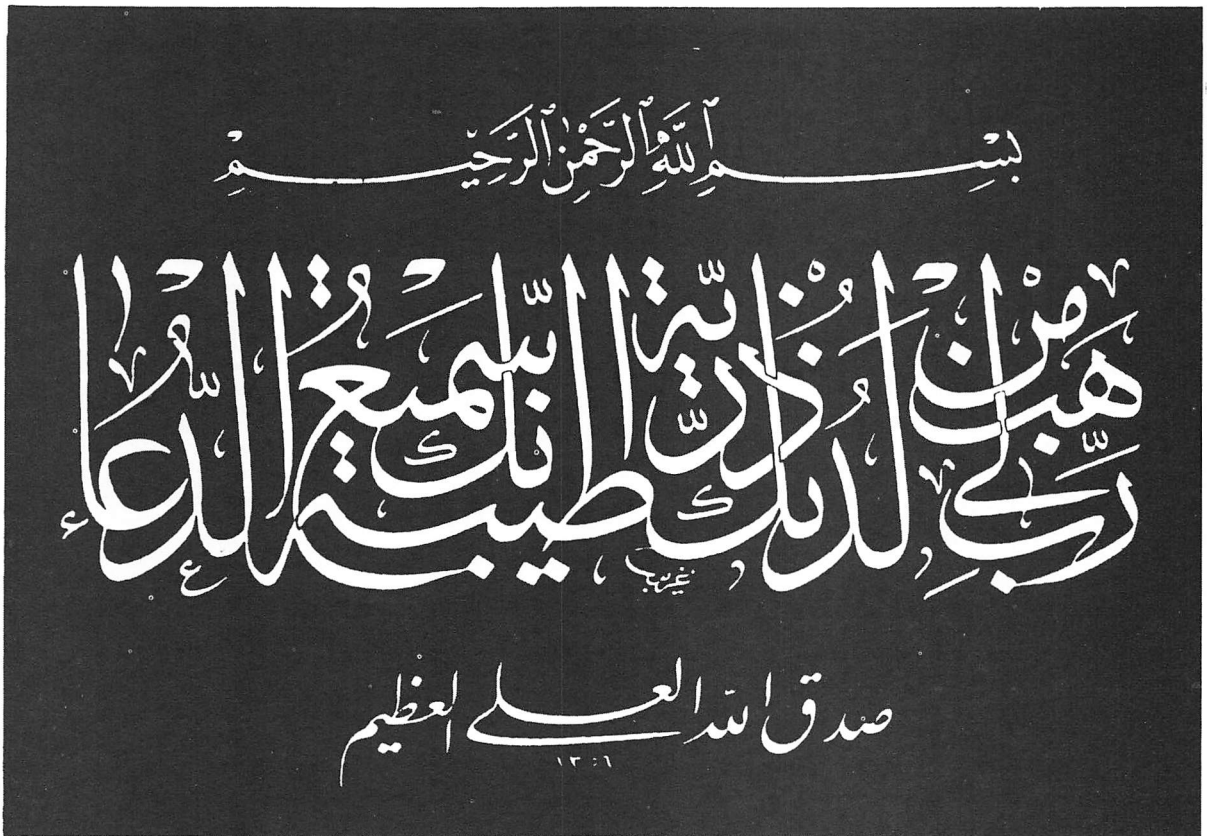 بِسْمِ ٱللَّهِ ٱلرَّحْمٰنِ ٱلرَّحِيْمِ
رَبِّ هَبْ لِي مِنْ لَدُنْكَ ذُرِّيَّةً طَيِّبَةً إِنَّكَ سَمِيعُ الدُّعَاءِ
صدق الله العلي العظيم